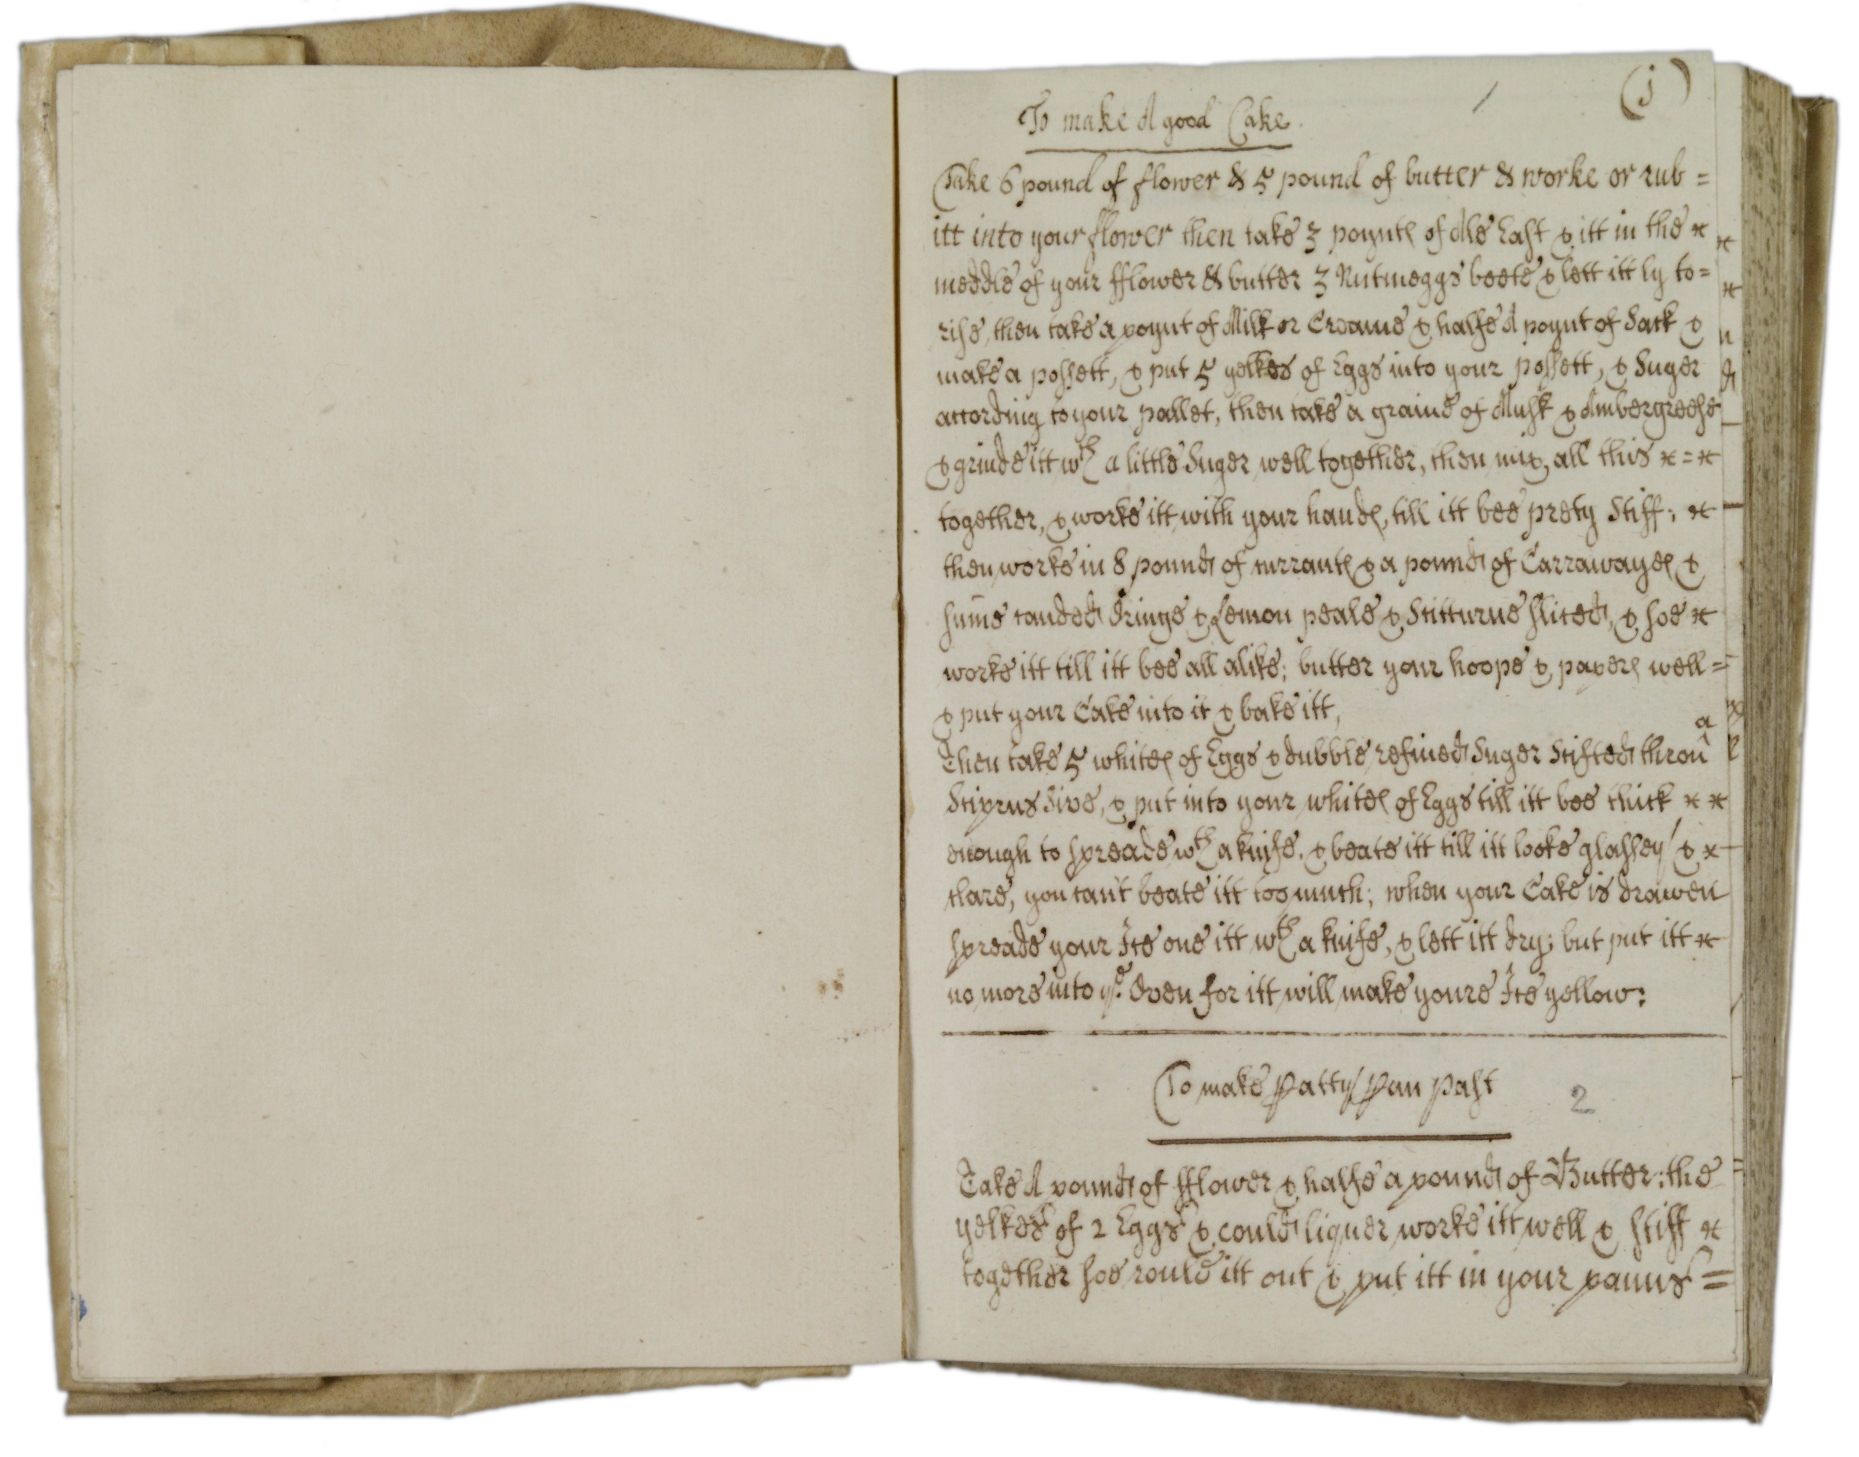 (j)
To make A good Cake.
Take 6 pound of flower & 5 pound of butter & worke or rub =
itt into your flower then take 3 poynts of Ale East & itt in the
meddle of your fflower & butter 3 Nutmeggs beete & lett itt ly to=
rise, then take a poynt of Milk or Creame & halfe A poynt of Sack &
make a possett, & put 5 yelkes of Eggs into your possett, & Suger
according to your pallet, then take a graine of Musk & Ambergreese
& grinde itt wth a little Suger well together, then mix all this
together, & worke itt with your hands, till itt bee prety Stiff;
then worke in 8 pound of currants & a pound of Carrawayes &
sume canded Oringe & Lemon peale & Stitturne sliced, & soe
worke itt till itt bee all alike; butter your hoope & papers well =
& put your Cake into it & bake itt,
Then take 5 whites of Eggs & dubble refined Suger Stifted throu a
Stiprus Sive, & put into your whites of Eggs till itt bee thick
enough to spreade wth a knife, & beate itt till itt looke glassey & 
clare, you can't beate itt too much; when your Cake is drawen
spreade your Ice one itt wth a knife, & lett itt dry; but put itt
no more into ye Oven for itt will make youre Ice yellow:
To make Patty Pan past
2
Take A pound of fflower & halfe a pound of Butter: the
yelkes of 2 Eggs & could liquer worke itt well & stiff
together soe rould itt out & put itt in your panns =